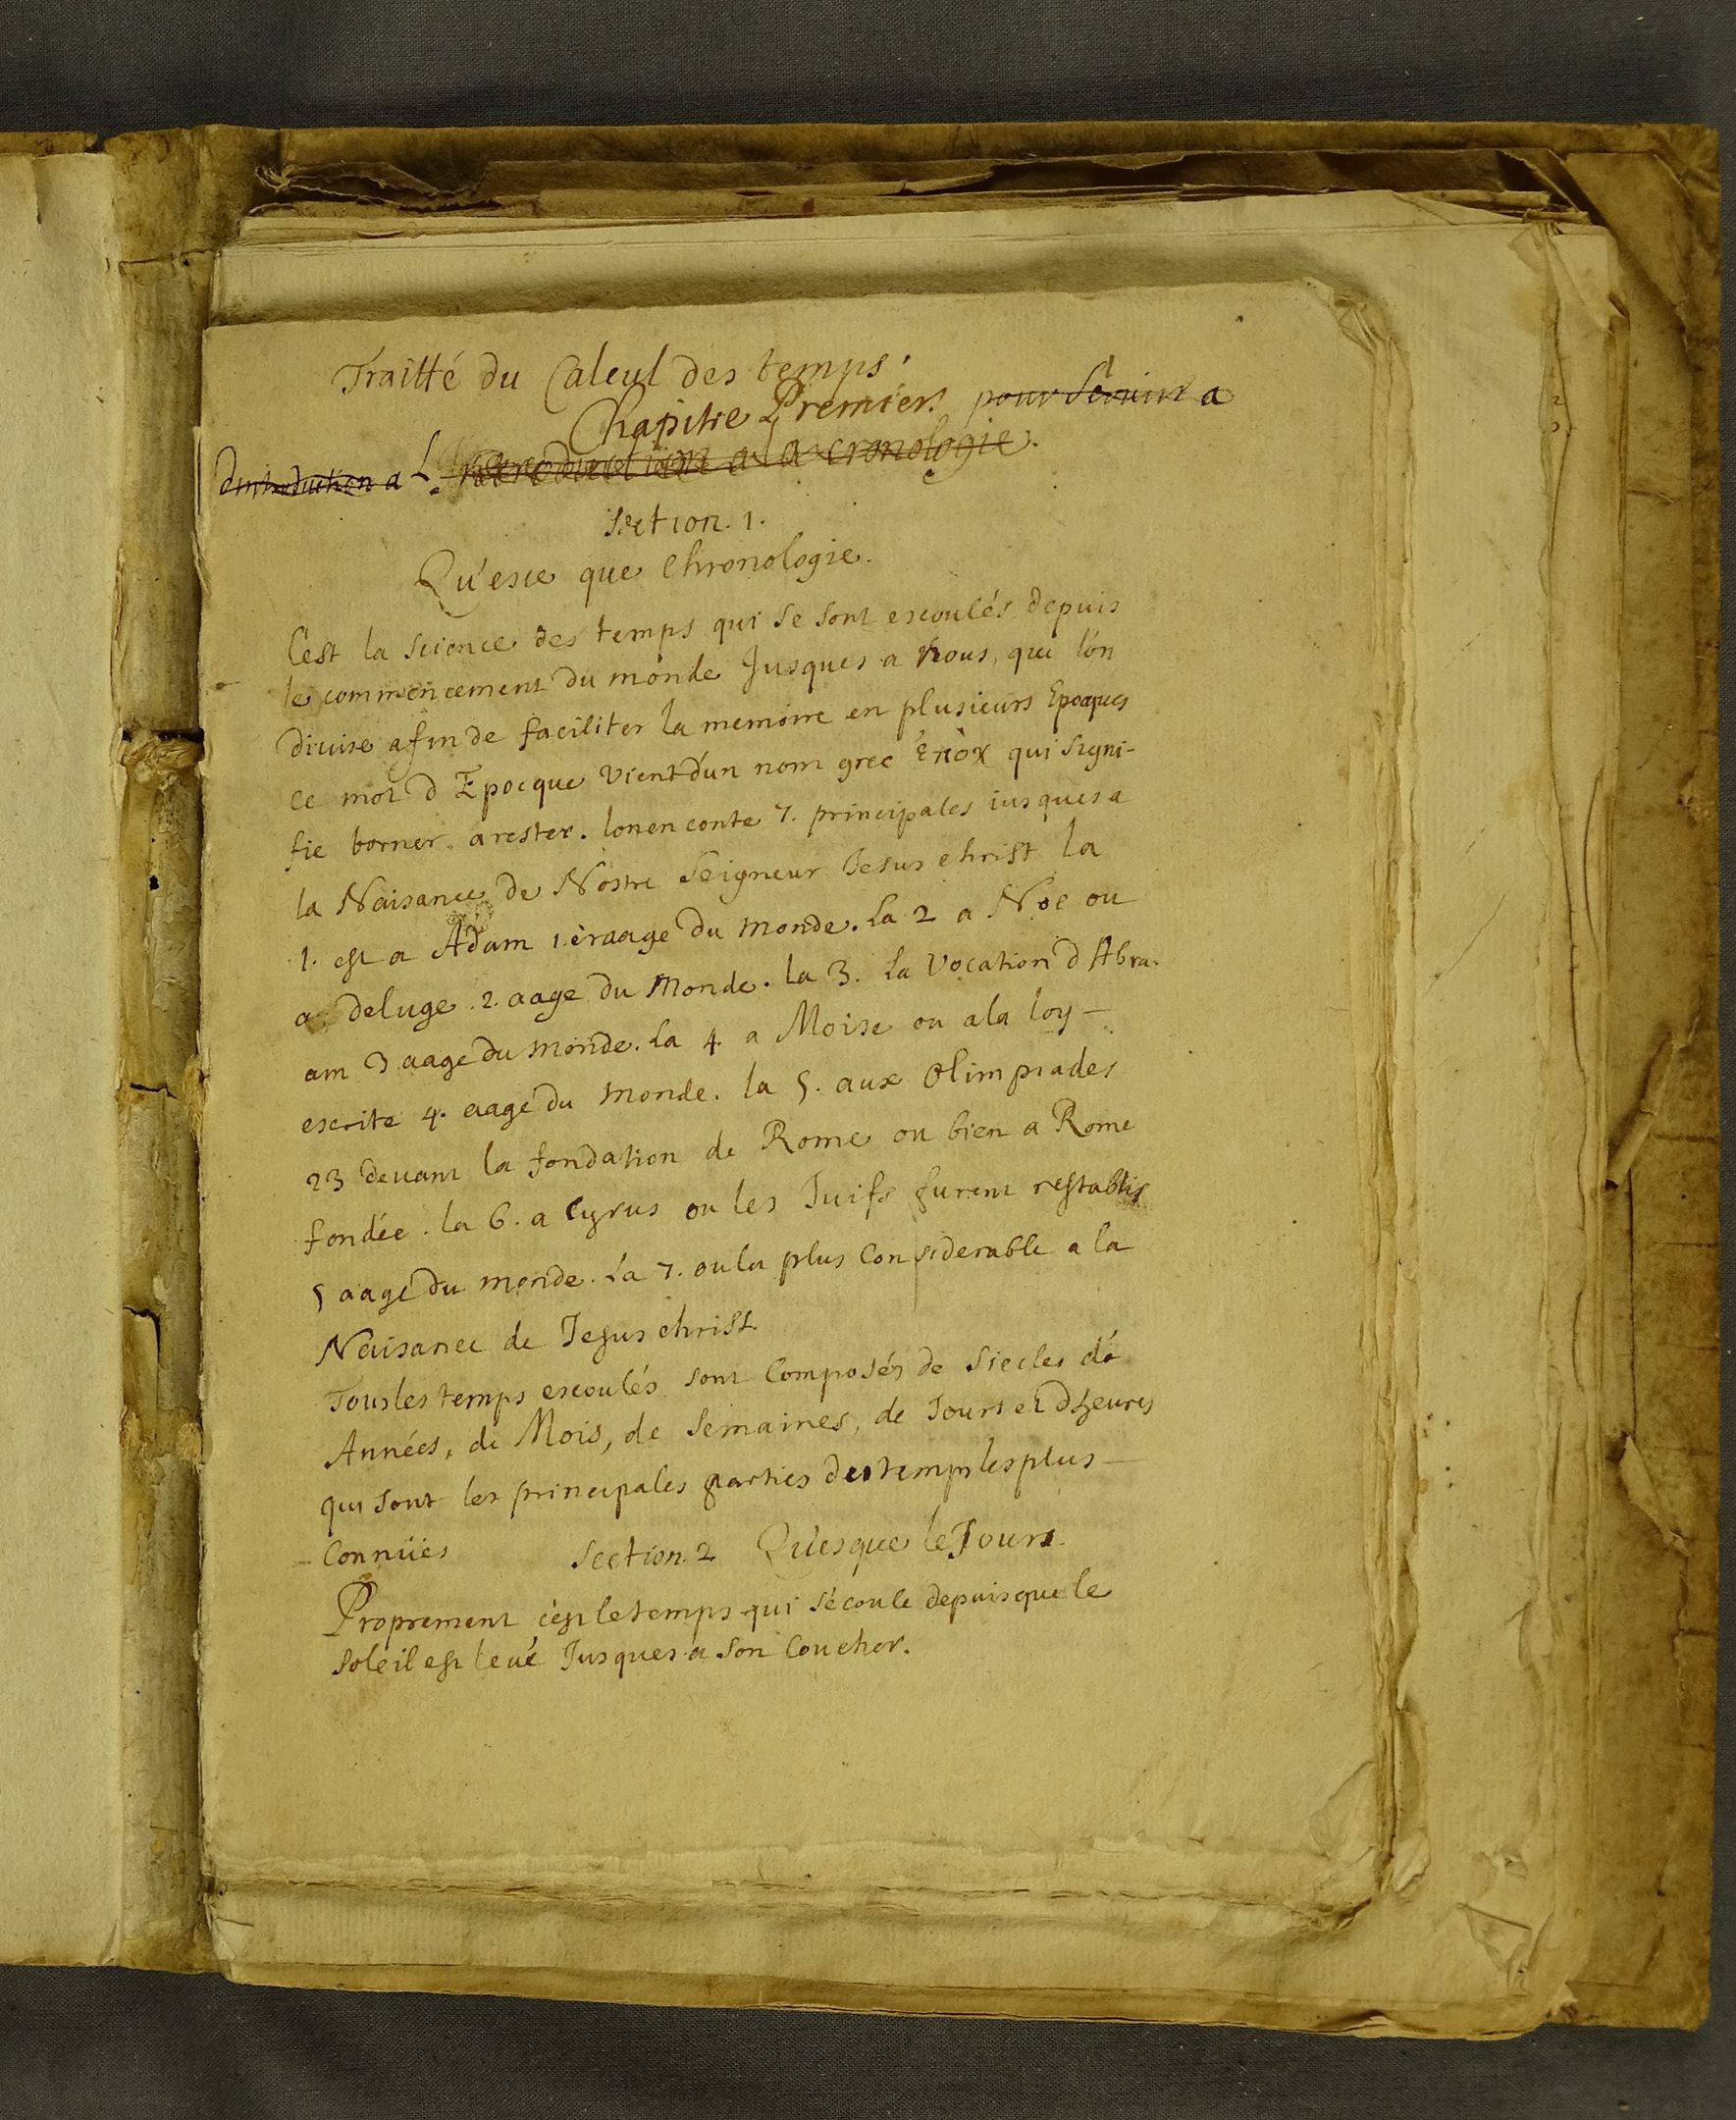 Traitté du Calcul des temps.
Chapitre Premier. pour Servir a
dintroduction a L. introduction a la cronologie.
Section. 1.
Qu'esce que Chronologie.
C'est la Science des temps qui se sont escoulés depuis
le commencement du monde Jusques a nous, que l'on
divise afin de faciliter la memoire en plusieurs Epocques
ce mot d Epocque vient d'un nom grec qui Signi-
fie borner arester. lonen conte 7. principales iusques a
la Naisance de Nostre Seigneur Jesus christ la
1. est a Adam 1.er aage du monde. La 2 a Noe ou
a deluge. 2. aage du Monde. la 3. la Vocation d Abra-
am 3 aage du monde. La 4. a Moise ou a la loy —
escrite 4. aage du monde. la 5. aux Olimpiades
23 devant la fondation de Rome ou bien a Rome
fondée. la 6. a Cyrus ou les Juifs furent restablis
5 aage du monde. La 7. ou la plus Considerable a la
Naisance de Jesus christ
Tous les temps escoulés sont Composés de Siecles dé
Années, de Mois, de Semaines, de Jours et dheures
qui sont les principales parties des temps les plus —
Connües Section. 2 Qu'esque le Jour.
Proprement c'est le temps qui s'écoule depuis que le
soleil est levé Jusques a son Coucher.